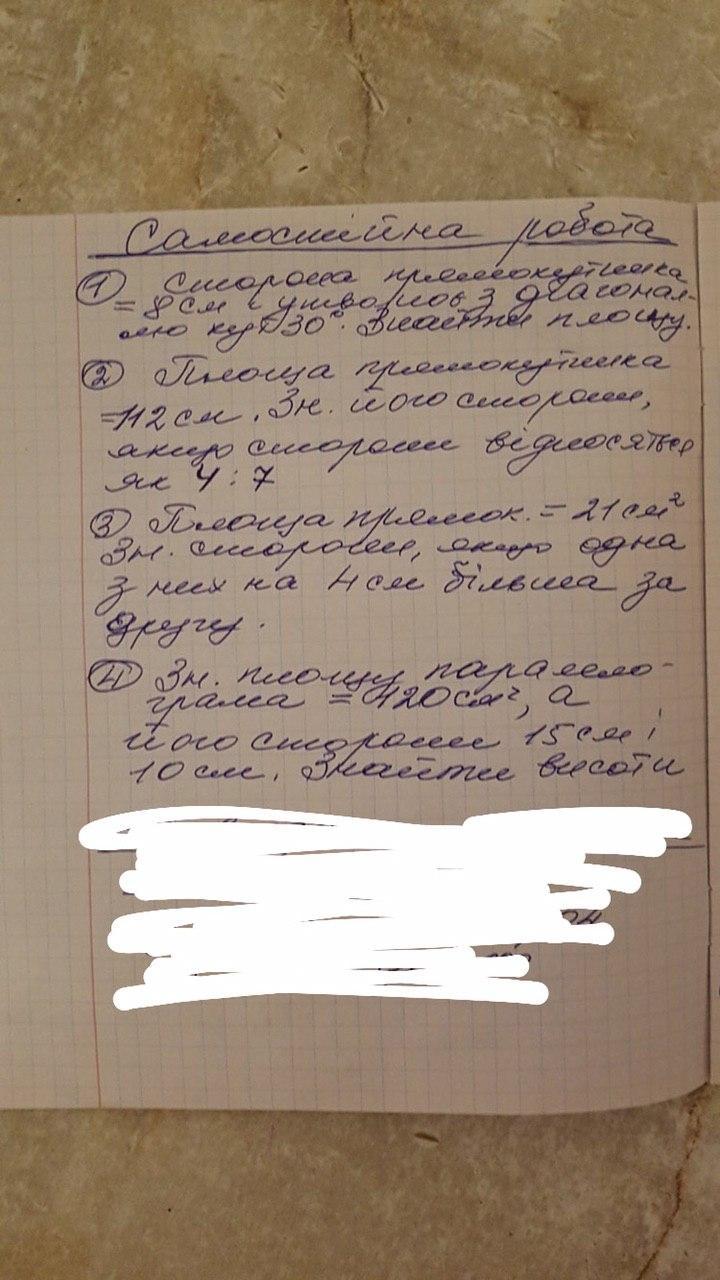 Самостійна робота
① Сторона прямокутника
= 8 см і утворює з діагонал-
лю кут 30°. Знайти площу.
② Площа прямокутника
=112 см. Зн. його сторони,
якщо сторони відносяться
як 4 : 7
③ Площа прямок. = 21 см²
Зн. сторони, якщо одна
з них на 4 см більша за
другу.
④ Зн. площу парало-
грама = 120 см², а
його сторони 15 см і
10 см. Знайти висоти